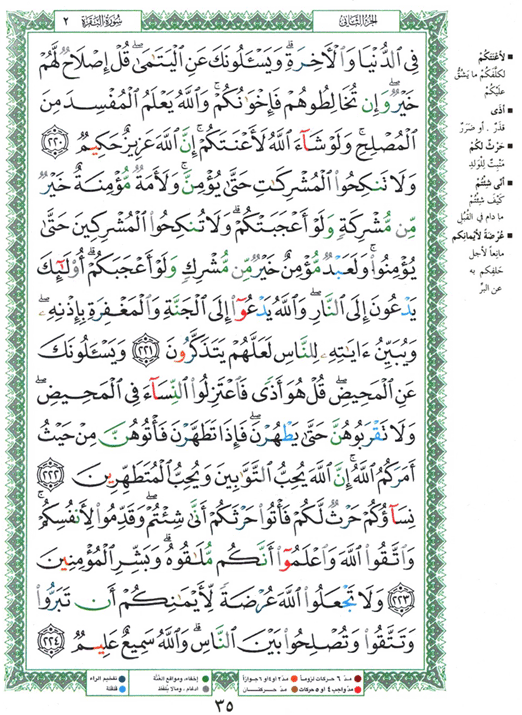 الجزء الثاني
سورة البقرة ٢
فِى ٱلدُّنْيَا وَٱلْءَاخِرَةِ ۗ وَيَسْـَٔلُونَكَ عَنِ ٱلْيَتَـٰمَىٰ ۖ قُلْ إِصْلَاحٌ لَّهُمْ
خَيْرٌ ۖ وَإِن تُخَالِطُوهُمْ فَإِخْوَٰنُكُمْ ۚ وَٱللَّهُ يَعْلَمُ ٱلْمُفْسِدَ مِنَ
ٱلْمُصْلِحِ ۚ وَلَوْ شَآءَ ٱللَّهُ لَأَعْنَتَكُمْ ۚ إِنَّ ٱللَّهَ عَزِيزٌ حَكِيمٌ ٢٢٠
وَلَا تَنكِحُوا۟ ٱلْمُشْرِكَـٰتِ حَتَّىٰ يُؤْمِنَّ ۚ وَلَأَمَةٌ مُّؤْمِنَةٌ خَيْرٌ
مِّن مُّشْرِكَةٍ وَلَوْ أَعْجَبَتْكُمْ ۗ وَلَا تُنكِحُوا۟ ٱلْمُشْرِكِينَ حَتَّىٰ
يُؤْمِنُوا۟ ۚ وَلَعَبْدٌ مُّؤْمِنٌ خَيْرٌ مِّن مُّشْرِكٍ وَلَوْ أَعْجَبَكُمْ ۗ أُو۟لَـٰٓئِكَ
يَدْعُونَ إِلَى ٱلنَّارِ ۖ وَٱللَّهُ يَدْعُوٓا۟ إِلَى ٱلْجَنَّةِ وَٱلْمَغْفِرَةِ بِإِذْنِهِۦ ۖ
وَيُبَيِّنُ ءَايَـٰتِهِۦ لِلنَّاسِ لَعَلَّهُمْ يَتَذَكَّرُونَ ٢٢١ وَيَسْـَٔلُونَكَ
عَنِ ٱلْمَحِيضِ ۖ قُلْ هُوَ أَذًى فَٱعْتَزِلُوا۟ ٱلنِّسَآءَ فِى ٱلْمَحِيضِ ۖ
وَلَا تَقْرَبُوهُنَّ حَتَّىٰ يَطْهُرْنَ ۖ فَإِذَا تَطَهَّرْنَ فَأْتُوهُنَّ مِنْ حَيْثُ
أَمَرَكُمُ ٱللَّهُ ۚ إِنَّ ٱللَّهَ يُحِبُّ ٱلتَّوَّٰبِينَ وَيُحِبُّ ٱلْمُتَطَهِّرِينَ ٢٢٢
نِسَآؤُكُمْ حَرْثٌ لَّكُمْ فَأْتُوا۟ حَرْثَكُمْ أَنَّىٰ شِئْتُمْ ۖ وَقَدِّمُوا۟ لِأَنفُسِكُمْ ۚ
وَٱتَّقُوا۟ ٱللَّهَ وَٱعْلَمُوٓا۟ أَنَّكُم مُّلَـٰقُوهُ ۗ وَبَشِّرِ ٱلْمُؤْمِنِينَ
٢٢٣ وَلَا تَجْعَلُوا۟ ٱللَّهَ عُرْضَةً لِّأَيْمَـٰنِكُمْ أَن تَبَرُّوا۟
وَتَتَّقُوا۟ وَتُصْلِحُوا۟ بَيْنَ ٱلنَّاسِ ۗ وَٱللَّهُ سَمِيعٌ عَلِيمٌ ٢٢٤
لأعنتكم
لكلفكم ما يشقُّ
عليكم
أذى
قذر . أو ضررٌ
حرثٌ لكم
منبتٌ للولد
أنى شئتم
كيف شئتم
ما دام في القُبُل
عُرضةً لأيمانكم
مانعاً لأجل
حلفكم به
عن البرّ
مدّ ٦ حركات لزوماً
مدّ ٢ أو ٤ أو ٦ جوازاً
إخفاء، ومواقع الغنّة
تفخيم الراء
مدّ واجب ٤ أو ٥ حركات
مدّ حركتان
ادغام ، وما لا يُلفظ
قلقلة
٣٥